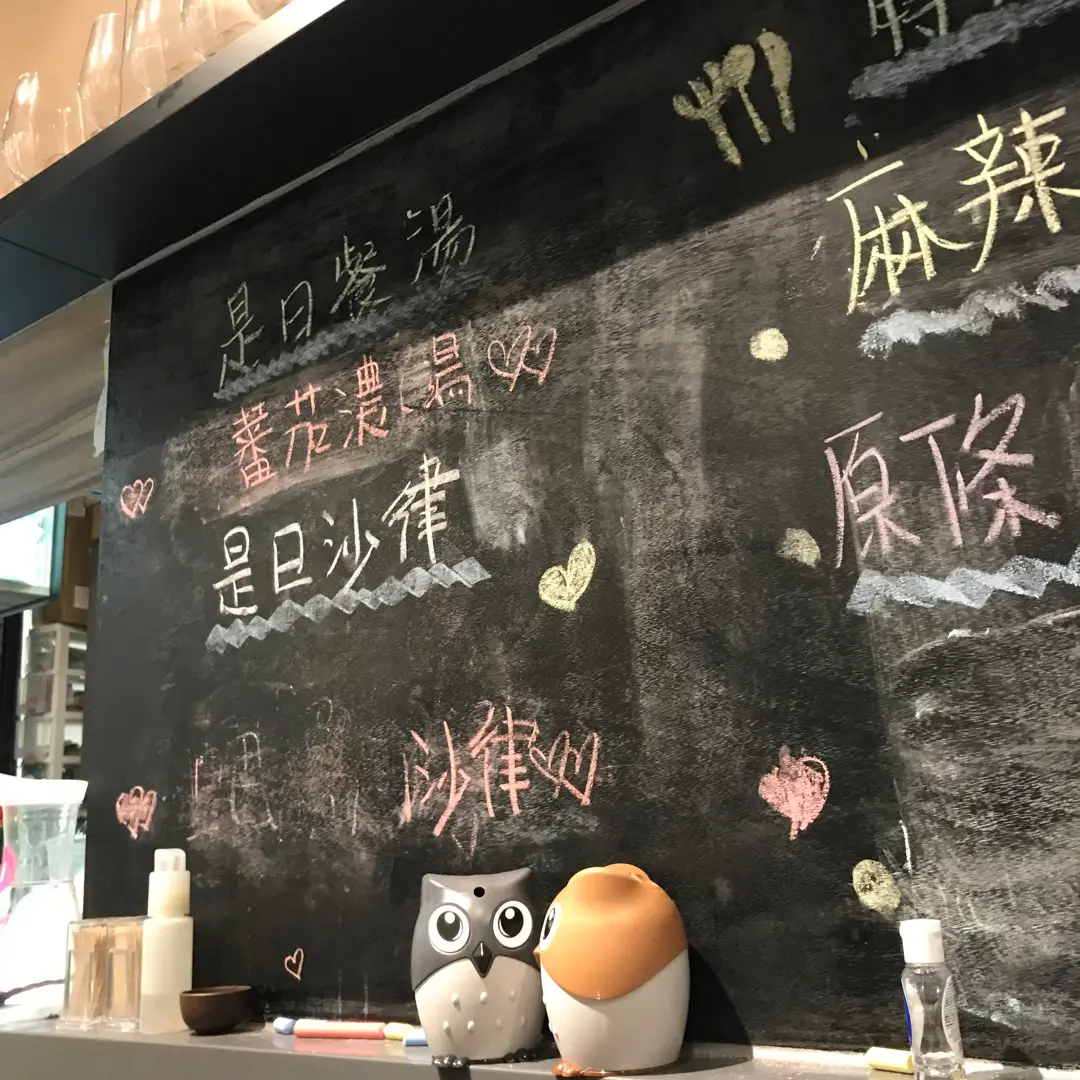 是日餐湯
蕃茄濃湯
是日沙律
沙律
麻辣
原條